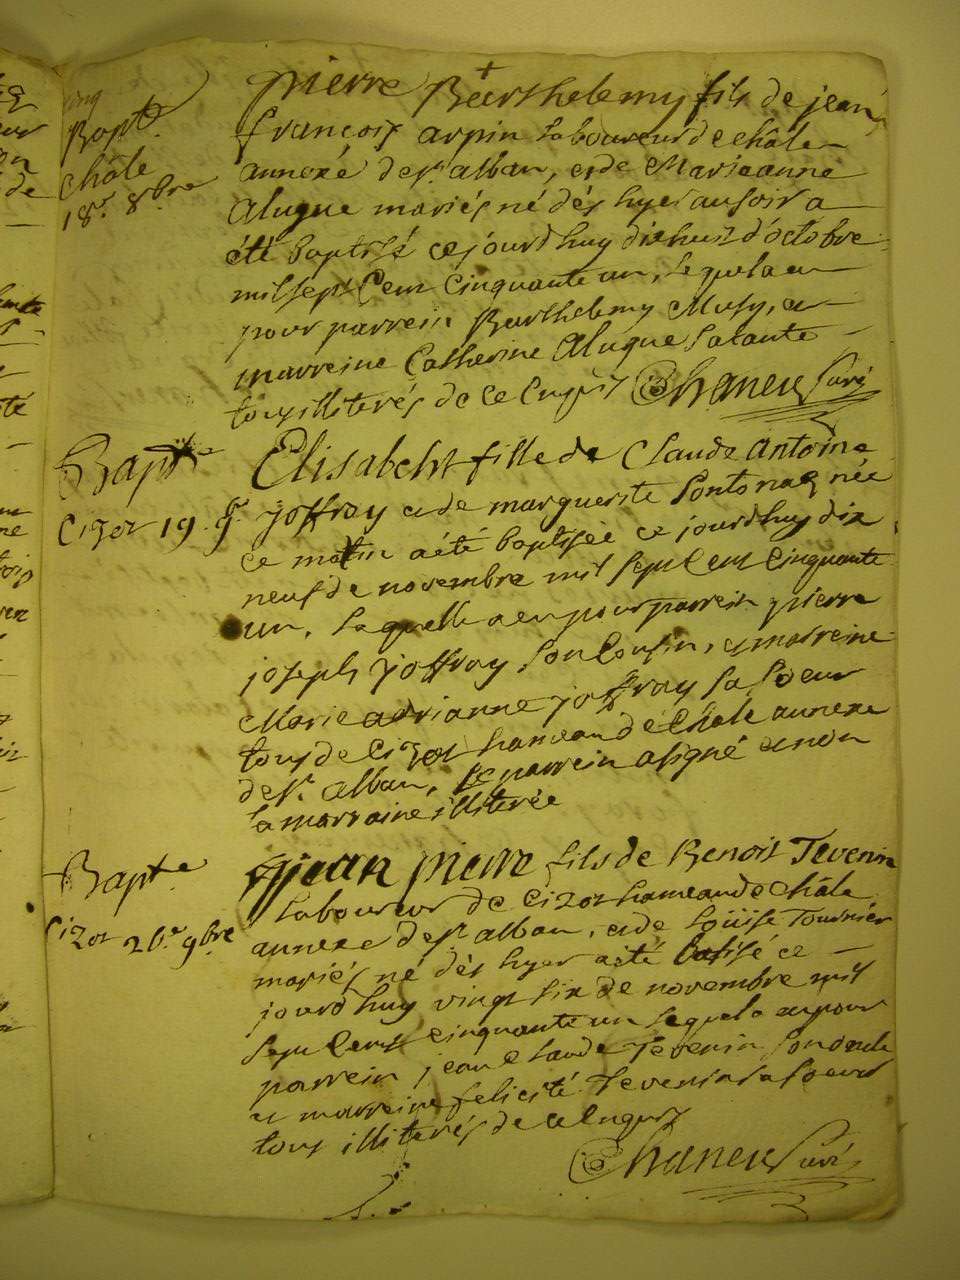 Bapt.e
Châle
18.e 8bre
pierre Barthelemy fils de jean
françois arpin laboureur de châle
annexé de st alban, et de Marieanne
Alugue mariés né dès hyer au soir a
été baptisé ce jourdhuy dixhuit d'octobre
mil sept Cent Cinquante un, lequel a eu
pour parrein Barthelemy Musy, et
marreine Catherine Alugue sa tante
tous illiterés de ce enquis Chaneu Curé
Bapt.e
Cizot 19. 9.e
Elisabeht fille de Claude Antoine
joffray et de marguerite Fontonaz née
ce matin a été baptisée ce jourdhuy dix
neuf de novembre mil sept Cent Cinquante
un, laquelle a eu pour parrein pierre
joseph joffray son Cousin, et marreine
Marie adrianne joffray sa Soeur
tous de Cizot hameau de Châle annexe
de st alban, le parrein a signé et non
la marraine illiterée
Bapt.e
Cizot 26.e 9bre
jean pierre fils de Benoit Tevenin
laboureur de Cizot hameau de Châle
annexe de st alban, et de Loüise Tournier
mariés né dès hyer a été batisé ce
jourdhuy vingt six de novembre mil
sept Cent cinquante un lequel a eu pour
parrein jean Claude Tevenin son oncle
et marreine felicité Tevenin sa soeur
tous illiterés de ce enquis
Chaneu Curé